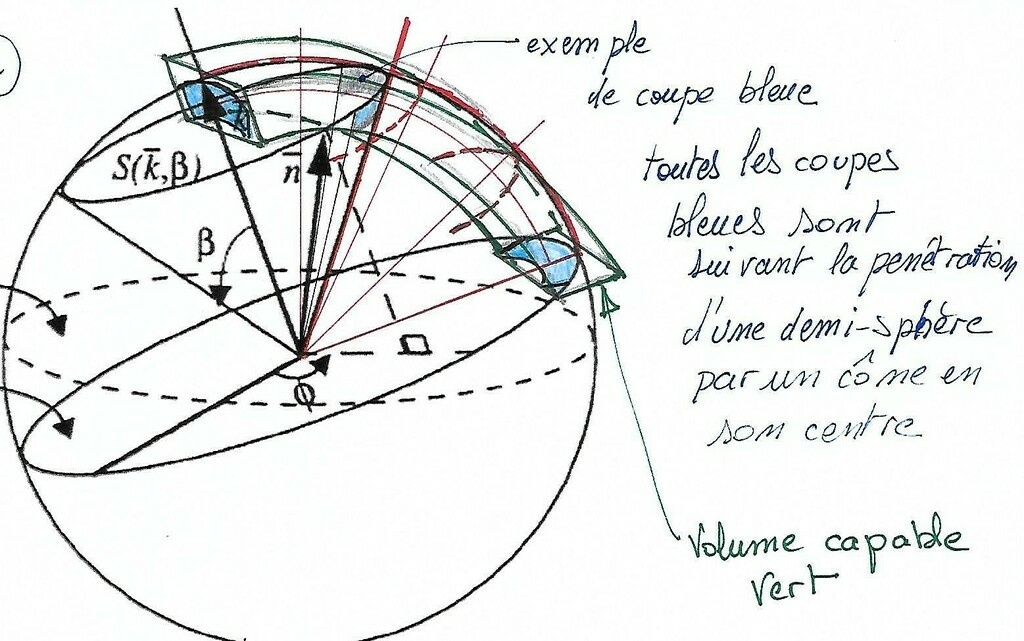 exemple
de coupe bleue
toutes les coupes
bleues sont
suivant la penêtration
d'une demi-sphère
par un cône en
son centre
Volume capable
vert
S(k̄,β)
n̄
k
β
φ